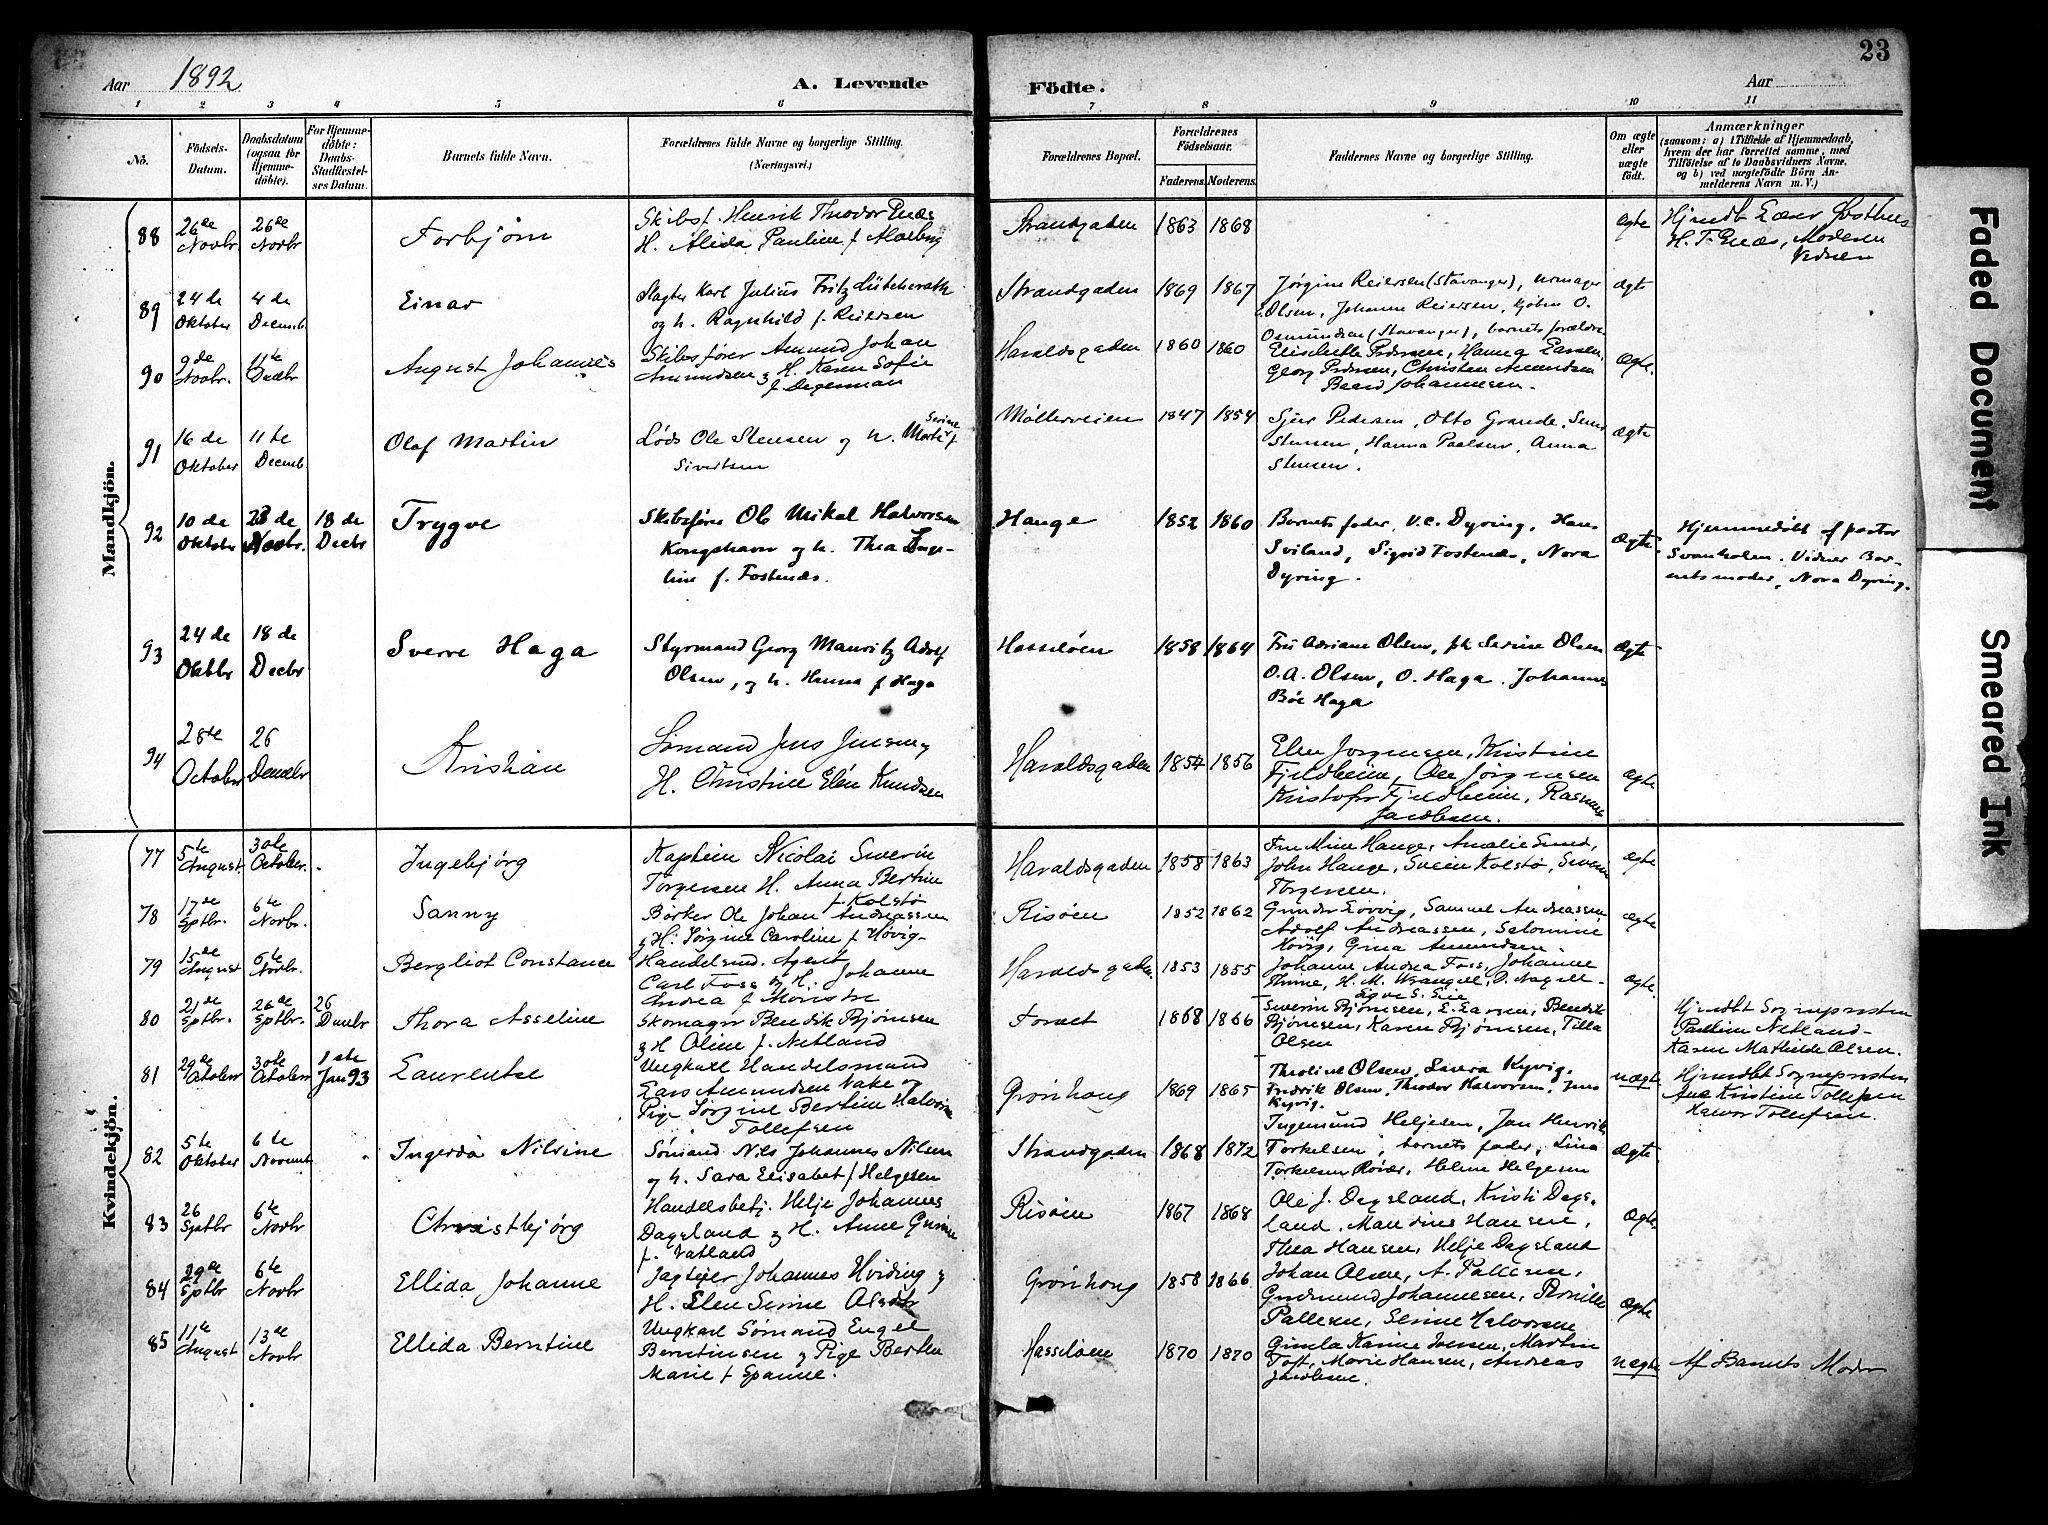 23
Aar 1892
A. Levende Födte.
Aar
1 2 3 4 5 6 7 8 9 10 11
No.
Födsels-Datum.
Daabsdatum (ogsaa for Hjemme-döbte).
For Hjemme-döbte: Daabs-Stadfæstel-ses Datum.
Barnets fulde Navn.
Forældrenes fulde Navne og borgerlige Stilling.
(Næringsvei.)
Forældrenes Bopæl.
Forældrenes Födselsaar.
Faderens. Moderens.
Faddernes Navne og borgerlige Stilling.
Om ægte eller uægte födt.
Anmærkninger
(saasom: a) i Tilfælde af Hjemmedaab,
hvem der har forrettet samme, med
Tilföielse af to Daabsvidners Navne.
og b) ved uægtefödte Börn An-
melderens Navn m.V.)
Mandkjön.
88 26de Novbr 26de Novbr Torbjörn
Skibsf. Henrik Theodor
H. Alida Pauline f.
Strandgaden 1863 1868 ægte
Moderen
89 24de Oktober 4de Decemb Einar
Slagter Karl Julius Fritz Lütcherath
og h. Ragnhild f. Reiersen
Strandgaden 1869 1867
Jørgine Reiersen (Stavanger), urmager
Olsen, Johanne Reiersen, O.
Osmundsen (Stavanger), barnets forældre
ægte
90 9de Novbr. 11te Decbr August Johannes
Skibsfører Amund Johan
Amundsen & H. Karen Sofie
f. Degerman
Haraldsgaden 1860 1860
Elisabeth Pedersen, Hanna Larsen,
Georg Pedersen, Christen Amundsen
Baard Johannesen.
ægte.
91 16de Oktober 11te Decemb Olaf Martin
Lods Ole Stensen og h. Marte Serine f.
Sivertsen
Møllerveien 1847 1854
Sjur Pedersen, Otto Grande,
Stensen, Hanna Paulsen, Anna
Stensen.
ægte
92 10de Oktober 23de Novbr. 18de Decbr Trygve
Skibsfører Ole Mikal Halvorsen
Kongshavn og h. Thea Inge-
line f. Fostenæs.
Hauge 1852 1860
Barnets fader, V.C. Dyring, Hans
Sviland, Sigrid Fostenæs, Nora
Dyring.
ægte.
Hjemmedöbt af pastor
Svanholm. Vidner Bar-
nets moder, Nora Dyring.
93 24de Oktbr 18de Decbr Sverre Haga
Styrmand Georg Mauritz Adolf
Olsen, og h. Hanna f Haga
Hasseløen 1858 1864
Fru Adriane Olsen, frk Serine Olsen
O.A. Olsen, O. Haga. Johannes
Böe Haga
ægte
94 28de October 26 December Kristian
Sømand Jens Jensen &
H. Christine Elen Knudsen
Haraldsgaden 1854 1856
Elen Jorgensen, Kristine
Fjeldheim, Ole Jorgensen
Kristofer Fjeldheim, Rasmus
Jacobsen.
ægte
Kvindekjön.
77 5te August. 30te October. Ingebjörg
Kaptein Nicolai Severin
Torgersen H. Anna Bertine
f. Kolstø
Haraldsgaden 1858 1863
Fru Mine Hauge, Amalie Sund,
John Hauge, Svein Kolstø, Severin
Torgersen.
ægte
78 17de Sptbr. 6te Novbr. Sanny
Bøtker Ole Johan Andreassen
& H. Jørgine Caroline f. Høvig
Risøen 1852 1862
Gunder Høvig, Samuel Andreassen
Adolf Andreassen, Salomine
Høvig, Gina Amundsen.
ægte
79 15de August 6te Novbr. Bergliot Constance
Handelsmd. Agent
Carl Foss og H. Johanne
Andrea f.
Haraldsgaden 1853 1855
Johanne Andrea Foss, Johanne
Thime, H. M. Wrangel, D. Nagell-
ægte.
80 21de Sptbr. 26de Sptbr. 26 Decbr Thora Asseline
Skomager Bendik Bjørnsen
& H Oline f. Netland
Torvet 1868 1866
Severin Bjørnsen, E. Larsen, Bendik
Bjørnsen, Karen Bjørnsen, Tilla
Olsen
Hjemdbt
Pauline Netland-
Karen Mathilde Olsen.
81 29de October 30te October 1ste Jan 93 Laurentse
Ungkarl Handelsmand
Lars Amundsen Vake og
Pige Jørgine Bertine Halvorine
Tollefsen
Grønhong 1869 1865
Theoline Olsen, Laura Kyvig.
Fredrik Olsen, Theodor Halvorsen, Jens
Kyvig.
uægte
Hjemdbt
Ane Kristine Tollefsen
Halvor Tollefsen.
82 5te Oktober 6te Novemb Ingerda Nilsine
Sømand Nils Johannes Nilsen
og h. Sara Elisabet f Helgesen
Strandgaden 1868 1872
Ingemund Heljesen, Jan Henrik
Torkelsen, barnets fader, Lina
Torkelsen Røvær, Helene Helgesen
ægte.
83 26 Sptbr 6te Novbr Christbjørg
Handelsbetj. Helje Johannes
Dagsland & H. Anne Gurine
f. Vatland
Risøen 1867 1868
Ole J. Dagsland, Kristi Dags-
land, Mandine Hansen,
Thea Hansen, Helje Dagsland
ægte
84 29de Sptbr 6te Novbr Ellida Johanne
Jagteier Johannes Hviding &
H. Elen Serine
Grønhong 1858 1866
Johan Olsen, A. Pallesen,
Gudmund Johannesen, Pernille
Pallesen, Serine Halvorsen
ægte
85 11te August 13de Novbr Ellida Berntine
Ungkarl Sømand Engel
Berntinsen & Pige Berthe
Marie f Spanne.
Hasseløen 1870 1870
Gisela Karine Iversen, Martin
Toft, Marie Hansen, Andreas
Jacobsen.
uægte
Af Barnets Moder
Faded Document
Smeared Ink